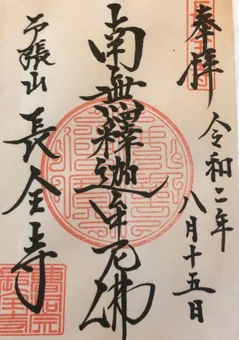 奉拝
令和二年
八月十五日
南無釋迦牟尼佛
予張山
長全寺